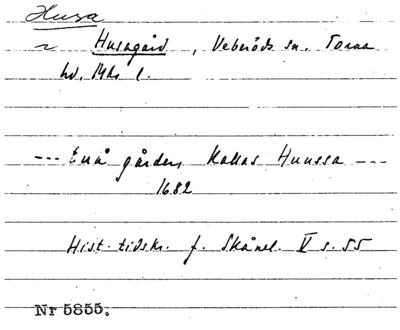 Husa
~ Husagård, Veberöds sn, Torna
hd, Mhs l.
--- Enå gården, Kallas Huussa ---
1682
Hist. tidskr. f. Skånel. V s. 55
Nr 5855.